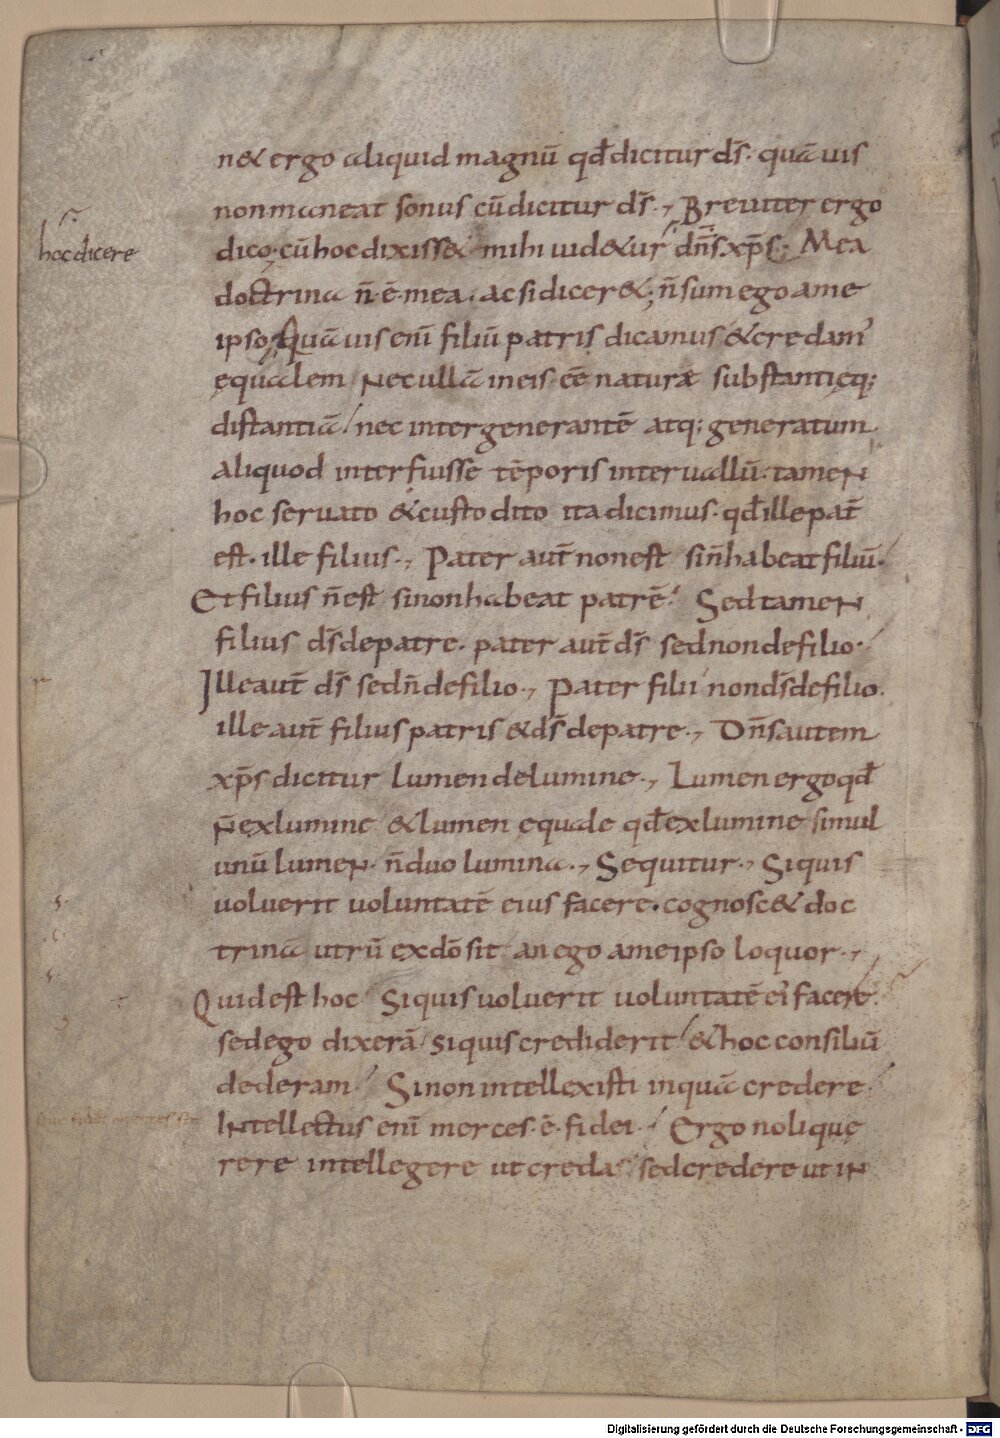 n& ergo aliquid magnū qđ dicitur d̄s· quāuis
non maneat sonus cū dicitur d̄s·, Breuiter ergo
hoc dicere
dico· cū hoc dixiss& mihi uid&ur dn̄s xp̄s; Mea
doctrina n̄·ē·mea· ac si dicer&; n̄ sum ego a me
ipso; Quāuis enī filiū patris dicamus & credam'
ęqualem Nec ullā in eis eē naturæ substantięq;
distantiā/ nec inter generantē atq; generatum
aliquod interfuisse tēporis interuallū· tamen
hoc seruato & custodito ita dicimus· qđ ille pat̄
est· ille filius·, Pater aut̄ non est si n̄ habeat filiū·
Et filius n̄ est si non habeat patrē· Sed tamen
filius d̄s de patre· pater aut̄ d̄s sed non de filio·
Ille aut̄ d̄s sed n̄ de filio·, Pater filii non d̄s de filio·
ille aut̄ filius patris & d̄s de patre·, Dn̄s autem
xp̄s dicitur lumen de lumine·, Lumen ergo qđ
n̄ ex lumine & lumen ęquale qđ ex lumine simul
unū lumen· n̄ duo lumina·, Sequitur·, Siquis
uoluerit uoluntatē eius facere· cognosc& de doc
trina utrū ex dō sit an ego a me ipso loquor·,
Quid est hoc Siquis uoluerit uoluntatē ei' facere·
sed ego dixerā/ siquis crediderit/ & hoc consiliū
dederam/ Si non intellexisti inquā crede re·
Intellectus enī merces·ē·fidei·/ Ergo noli quę
rere intellegere ut credas sed credere ut in
Digitalisierung gefördert durch die Deutsche Forschungsgemeinschaft - DFG